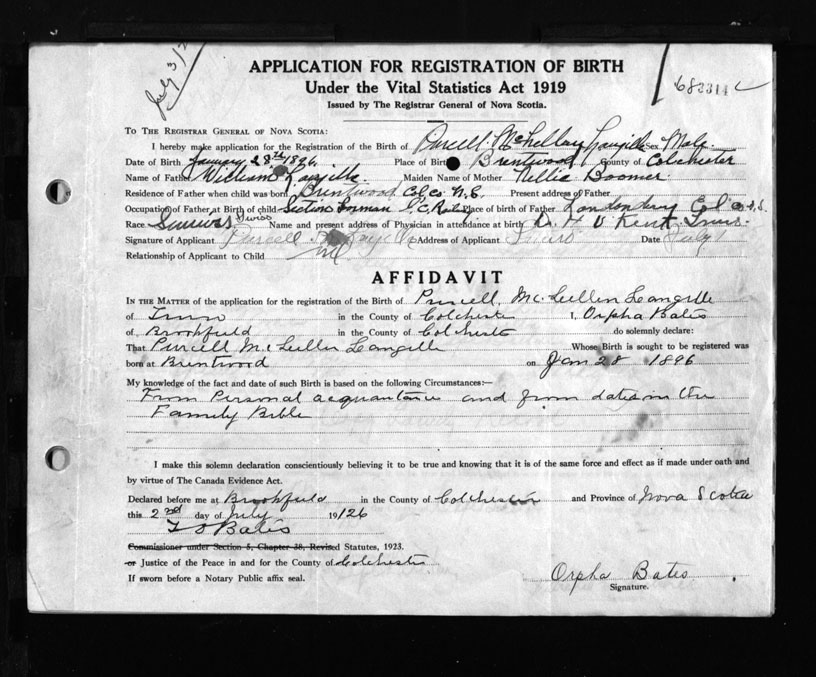 July 3/2
APPLICATION FOR REGISTRATION OF BIRTH
683314 C
Under the Vital Statistics Act 1919
Issued by The Registrar General of Nova Scotia.
TO THE REGISTRAR GENERAL OF NOVA SCOTIA:
I hereby make application for the Registration of the Birth of Purcell McLellan Langille Sex Male
Date of Birth January 28th 1896 Place of Birth Brentwood County of Colchester
Name of Father William Langille Maiden Name of Mother Nellie Boomer
Residence of Father when child was born Brentwood Col Co N.S. Present address of Father
Occupation of Father at Birth of child Section Forman Place of birth of Father Londonderry Col Co N.S.
Race Swiss Name and present address of Physician in attendance at birth Dr. H V Kent Truro
Signature of Applicant Purcell Address of Applicant Truro Date July 1
Relationship of Applicant to Child
AFFIDAVIT
IN THE MATTER of the application for the registration of the Birth of Purcell, Mc. Lellen Langille
of Truro in the County of Colchester I, Orpha Bates
of Brookfield in the County of Colchester do solemnly declare:
That Purcell Mc Lellen Langille Whose Birth is sought to be registered was
born at Brentwood on Jan 28 1896
My knowledge of the fact and date of such Birth is based on the following Circumstances:—
From Personal acquantance and from dates in the
Family Bible
I make this solemn declaration conscientiously believing it to be true and knowing that it is of the same force and effect as if made under oath and
by virtue of The Canada Evidence Act.
Declared before me at Brookfield in the County of Colchester and Province of Nova Scotia
this 2nd day of July 19/26
Bates
Commissioner under Section 5, Chapter 38, Revised Statutes, 1923.
or Justice of the Peace in and for the County of Colchester
If sworn before a Notary Public affix seal.
Orpha Bates
Signature.